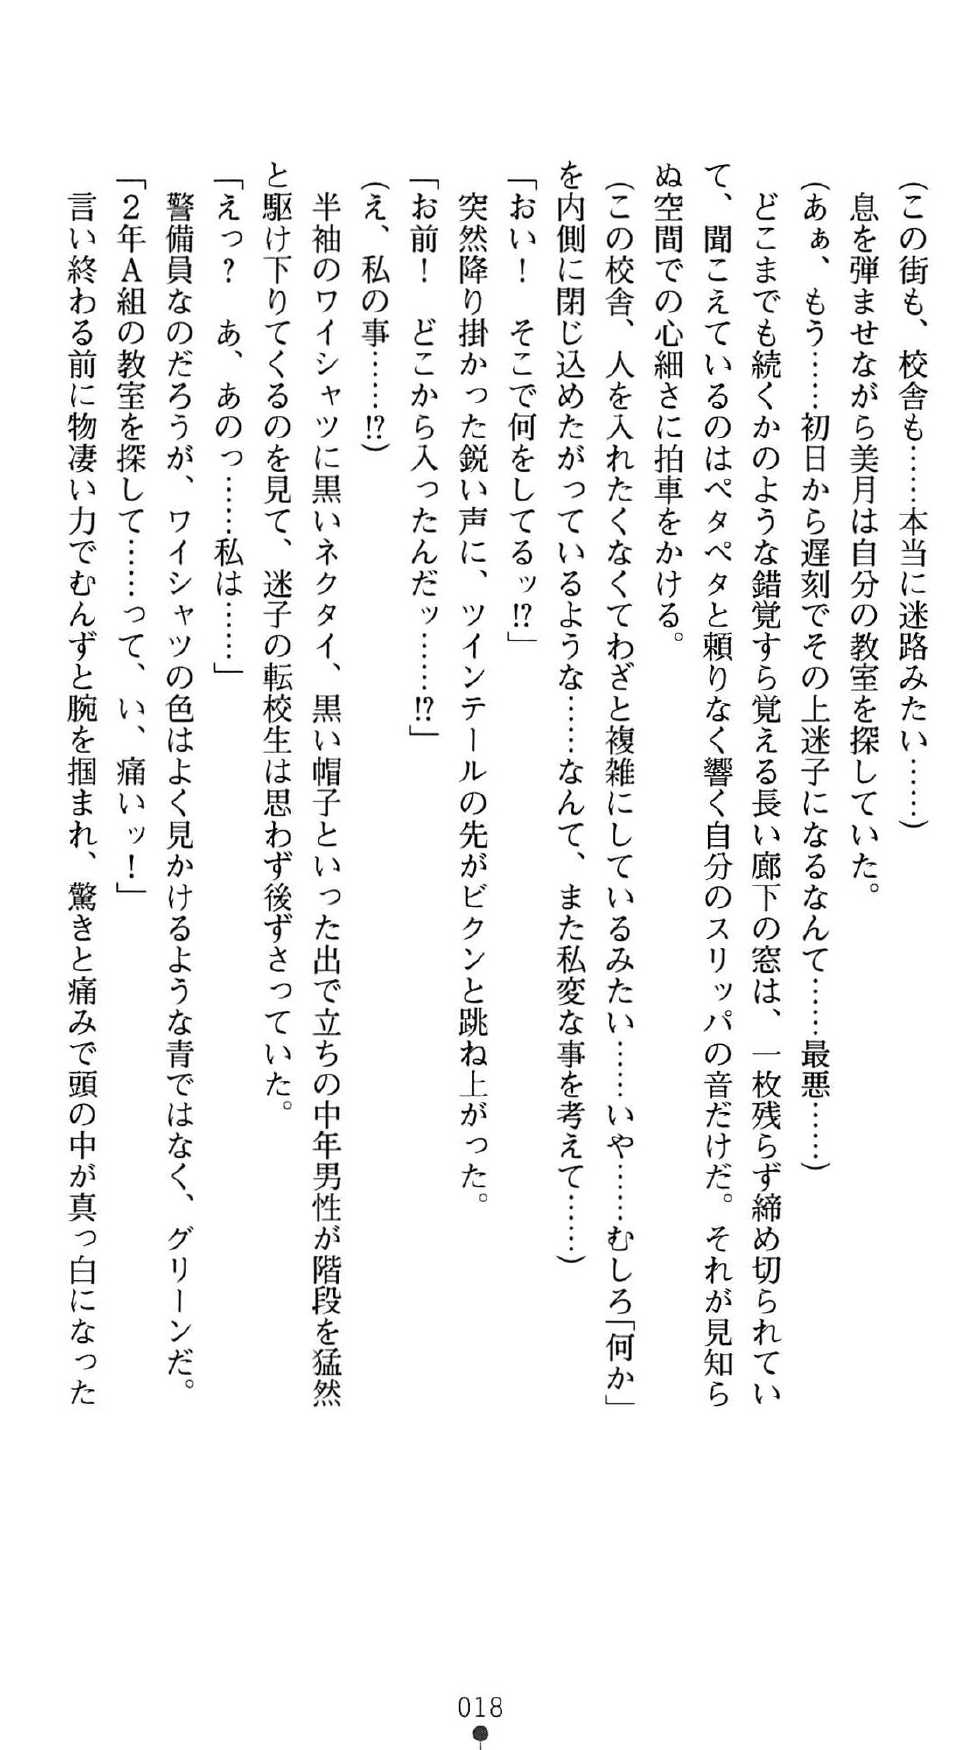 (この街も、校舎も……本当に迷路みたい……)
　息を弾ませながら美月は自分の教室を探していた。
(あぁ、もう……初日から遅刻でその上迷子になるなんて……最悪……)
　どこまでも続くかのような錯覚すら覚える長い廊下の窓は、一枚残らず締め切られてい
て、聞こえているのはペタペタと頼りなく響く自分のスリッパの音だけだ。それが見知ら
ぬ空間での心細さに拍車をかける。
(この校舎、人を入れたくなくてわざと複雑にしているみたい……いや……むしろ「何か」
を内側に閉じ込めたがっているような……なんて、また私変な事を考えて……)
「おい！　そこで何をしてるッ!?」
　突然降り掛かった鋭い声に、ツインテールの先がビクンと跳ね上がった。
「お前！　どこから入ったんだッ……!?」
(え、私の事……!?)
　半袖のワイシャツに黒いネクタイ、黒い帽子といった出で立ちの中年男性が階段を猛然
と駆け下りてくるのを見て、迷子の転校生は思わず後ずさっていた。
「えっ？　あ、あのっ……私は……」
　警備員なのだろうが、ワイシャツの色はよく見かけるような青ではなく、グリーンだ。
「２年Ａ組の教室を探して……って、い、痛いッ！」
　言い終わる前に物凄い力でむんずと腕を掴まれ、驚きと痛みで頭の中が真っ白になった
018